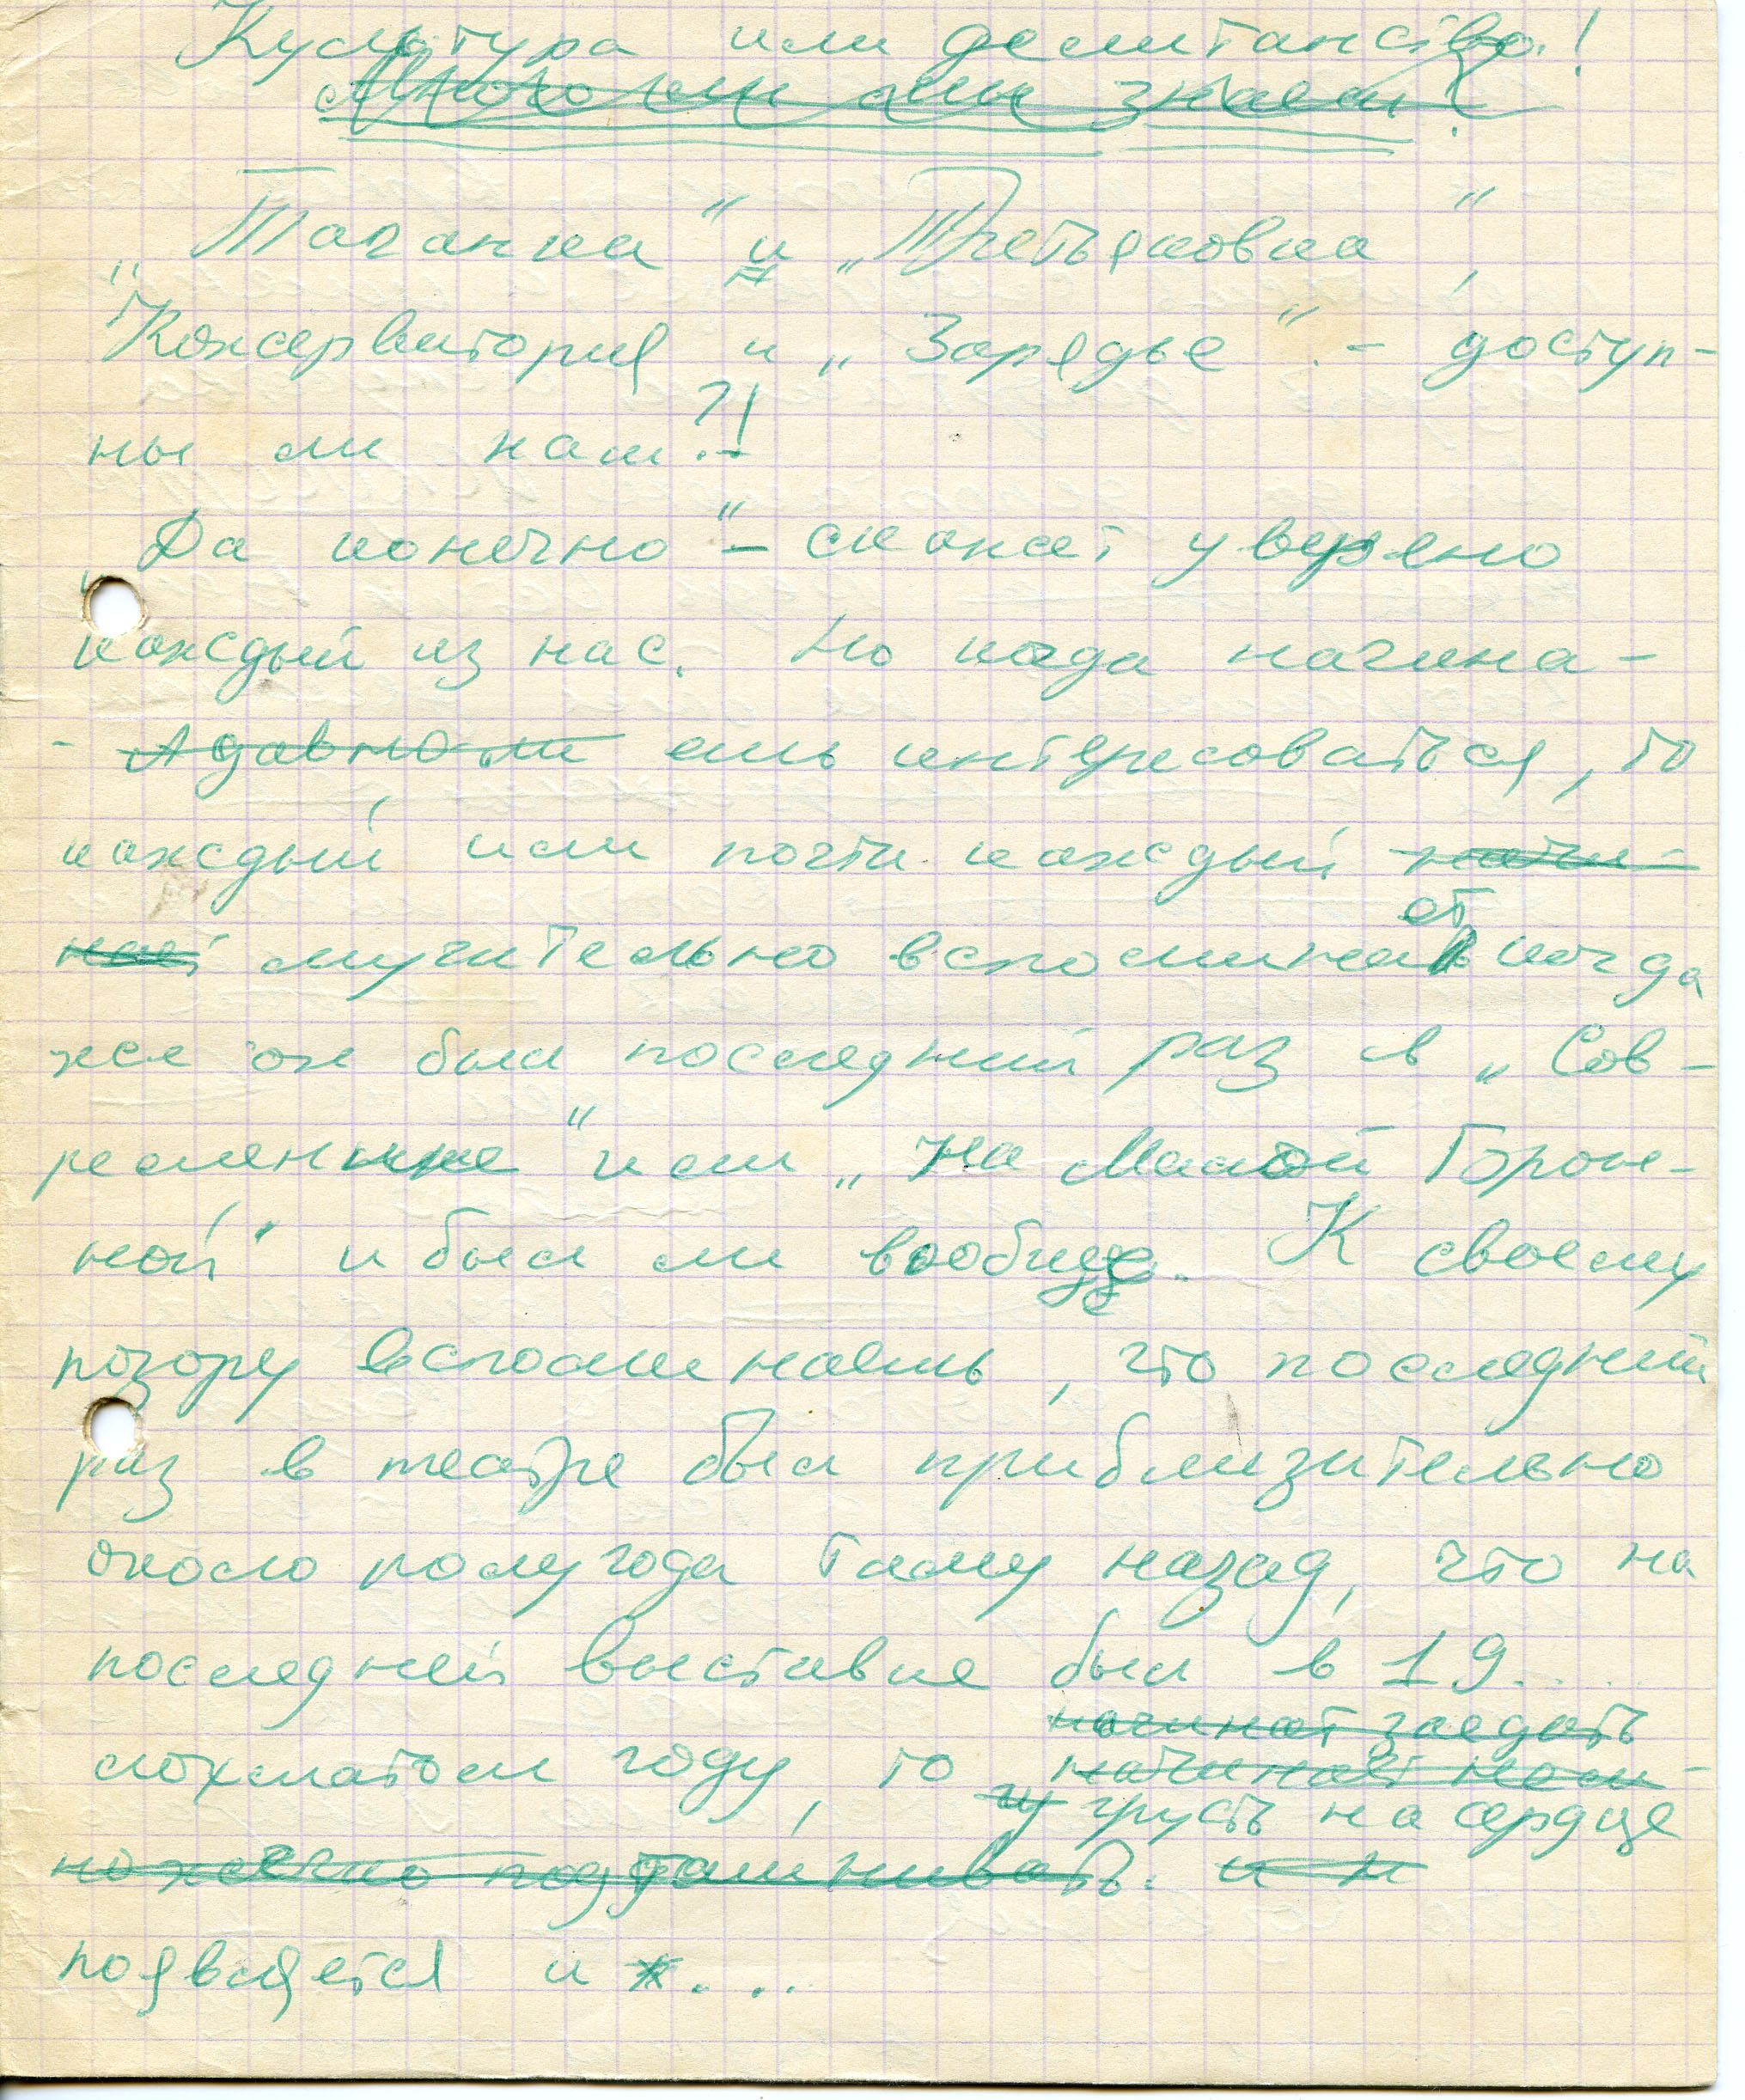 Культура или делитанство!
Много ли мы знаем?
„Таганка“ и „Третьяковка“,
"Консерватория и „Зарядье“ - доступ-
ны ли нам?!
„Да конечно“ - скажет уверено
каждый из нас. Но когда начина-
- А давно ли ешь интересоваться, то
каждый или почти каждый начи-
нает мучительно вспоминает когда
же он был последний раз в „Сов-
ременнике“ или „На Малой Брон-
ной“ и был ли вообще. К своему
позору вспоминаешь, что последний
раз в театре был приблизительно
около полугода таму назад, что на
последней выставке был в 19....
начинает заедать
лохматом году, то начинает нем-
гу грусть на сердце
ножечко подташнивать. и н
появляется и ж...